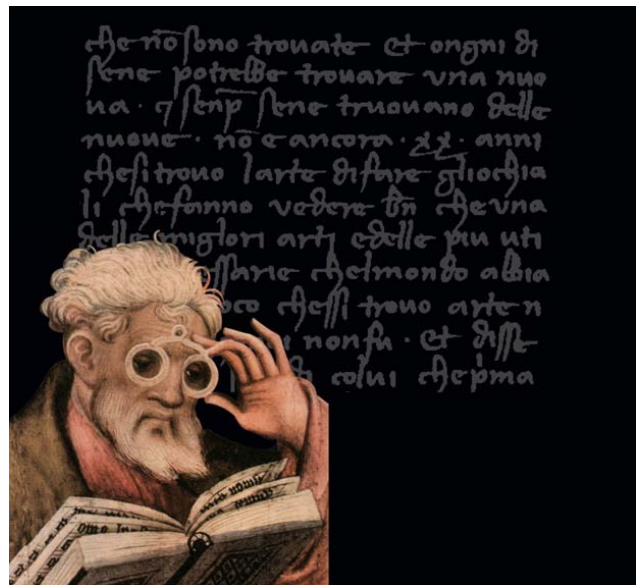 che nō sono trovate et ongni di
sene potrebbe trovare vna nuo
ua · ⁊ senp̄ sene truouano delle
nuoue · nō e ancora · xx · anni
chesi trouo larte difare gliochia
li chefanno vedere bn̄ che vna
delle miglori arti edelle piu uti
ssarie chelmondo abbia
oco chessi trouo arte n
i nonfu · et disse
di colui chepma